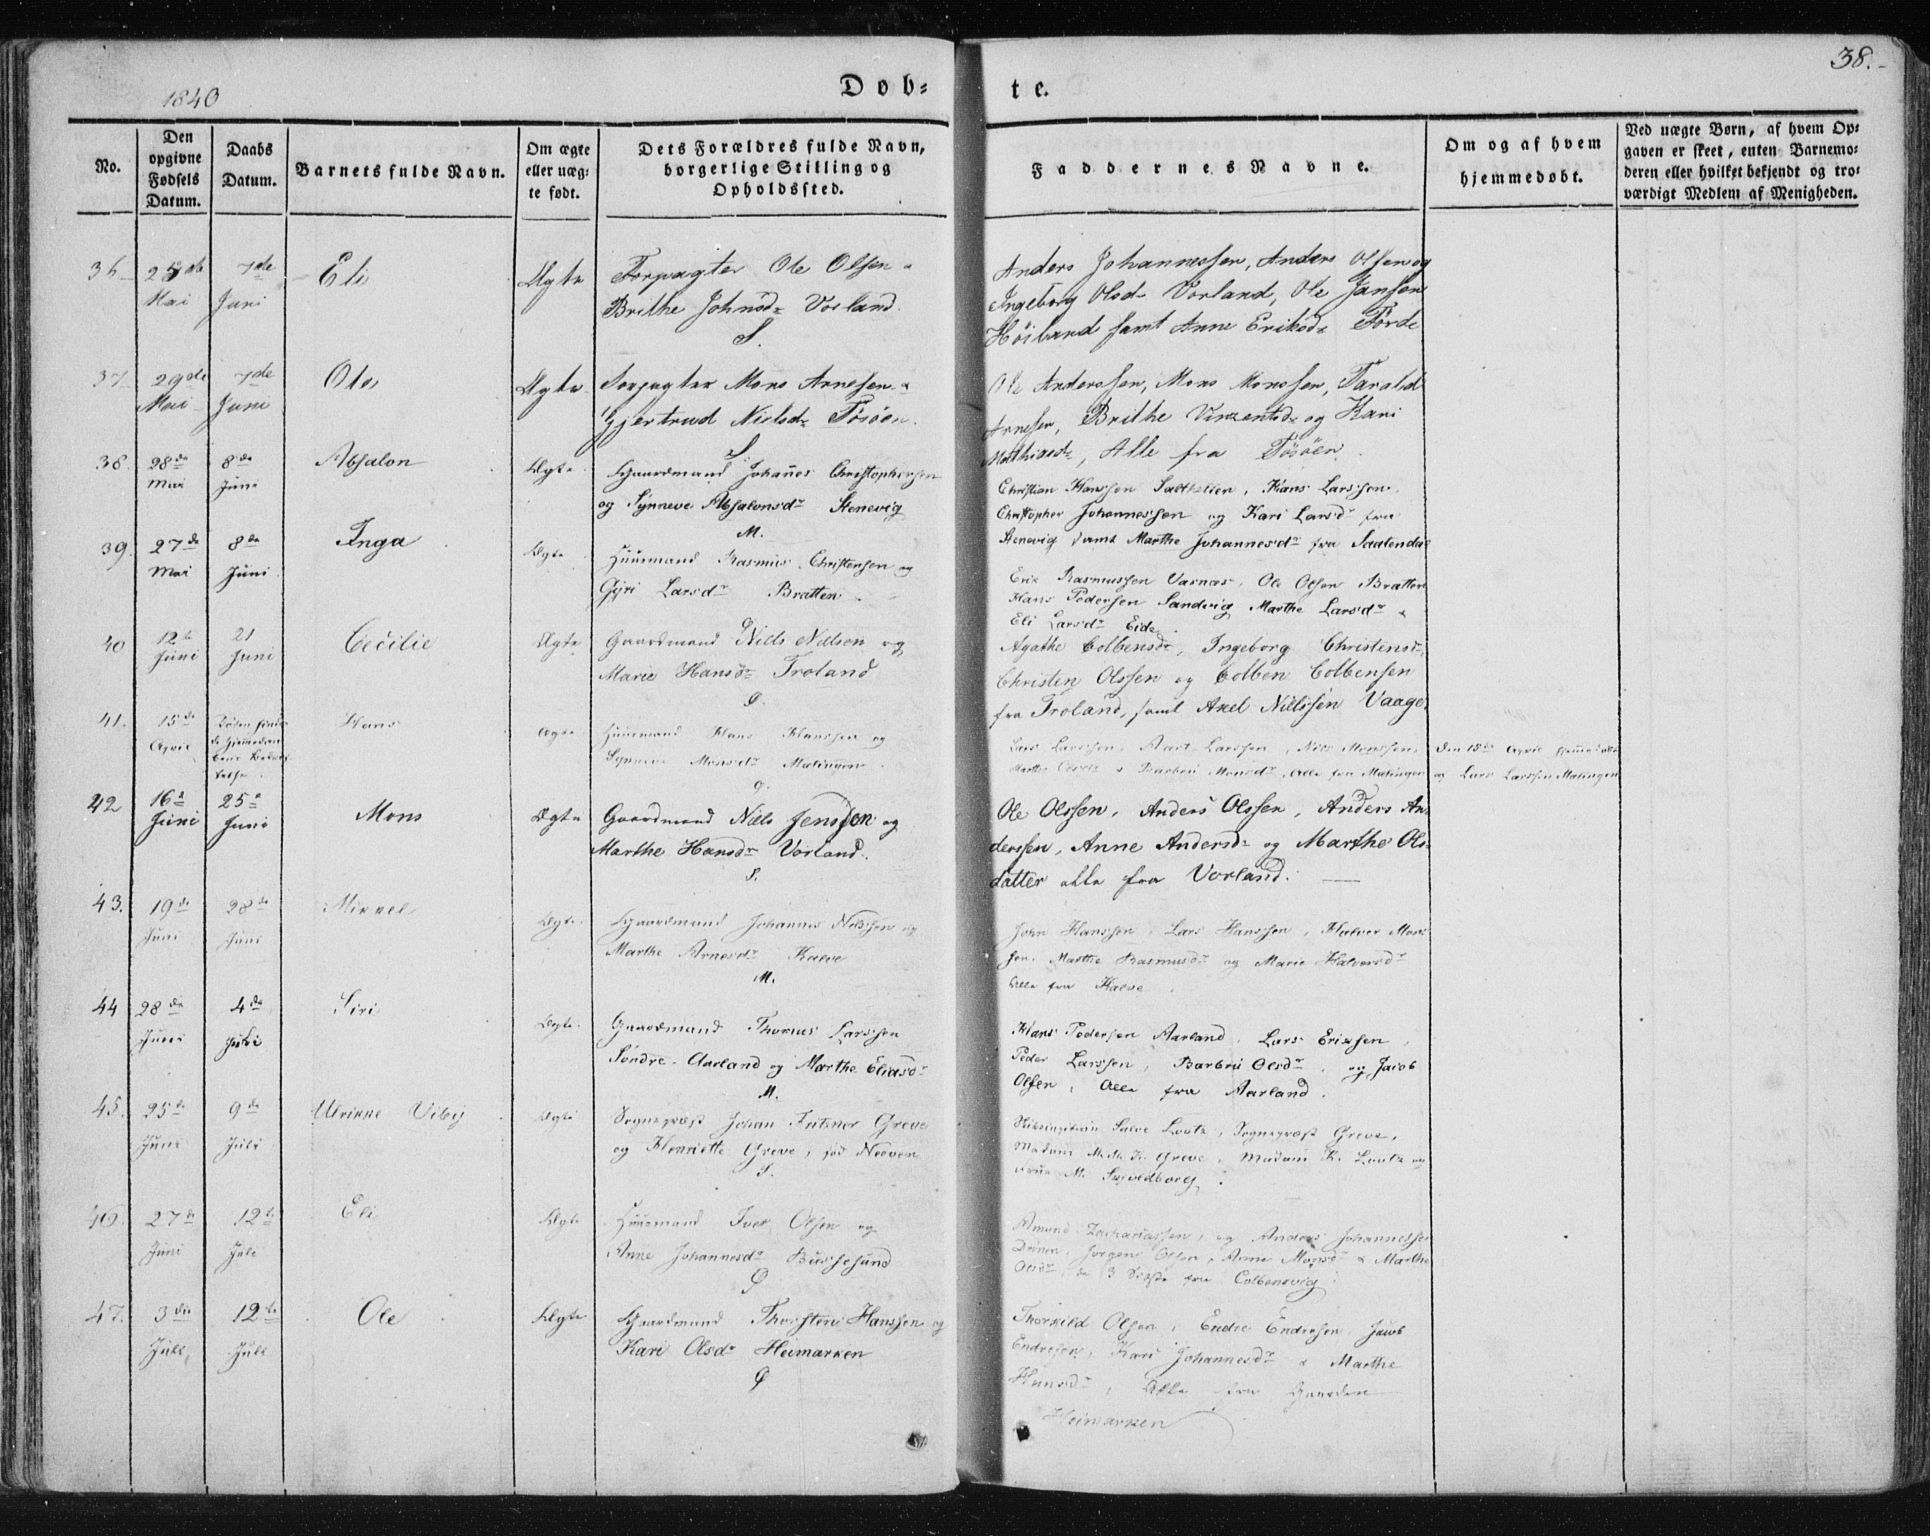 38.
1840
Døb-
te.
No.
Den opgivne Fødsels Datum.
Daabs Datum.
Barnets fulde Navn.
Om ægte eller uægte født.
Dets Forældres fulde Navn, borgerlige Stilling og Opholdssted.
Faddernes Navne.
Om og af hvem hjemmedøbt.
Ved uægte Børn, af hvem Op-
gaven er skeet, enten Barnemo-
deren eller hvilket bekjendt og tro-
værdigt Medlem af Menigheden.
36 25de Mai 7de Juni Eli Ægte
Forpagter Ole Olsen
Brithe Johnsd. Vorland.
S.
Anders Johannessen, Anders Olsen og
Ingeborg Olsd. Vorland, Ole Jansen
Høiland samt Anne Eriksd. Førde
37 29de Mai 7de Juni Ole Ægte
Forpagter Mons Arnesen
Gjertrud Nielsd.
S
Ole Anderssen, Mons Monssen, Farald
Arnesen, Brithe Vinzentsd. og Kari
Matthiasd., Alle fra
38. 28de Mai 8de Juni Absalon Ægte
Gaardmand Johannes Christophersen
og Synneve Absalonsdr Stenevig
M.
Christian Hanssen, Hans Larssen,
Christopher Johannessen og Kari Larsdr fra
Stenevig samt Marthe Johannesdr fra
39. 27de Mai 8de Juni Inga Ægte
Huusmand Rasmus Christensen og
Gyri Larsdr Bratten
Erik Rasmussen, Ole Olsen Bratten
Hans Pedersen Sandvig Marthe Larsdr
Eli Larsdr Eide.
40 12te Juni 21 Juni Cecilie Ægte
Gaardmand Niels Nielsen og
Marie Hansdr Troland
Agathe Colbensdr, Ingeborg Christensd.
Christen Olssen og Colben Colbensen
fra Troland, samt Axel Nilssen Vaage.
41. 15de April Hans Ægte
Huusmand Hans Hanssen og
Synneve Monsdr Matingen
Lars Larssen, Larssen, Nils Monssen,
Marthe Barbru Monsdr, Alle fra Matingen
Den 15de April
af Lars Larssen Matingen
42 16de Juni 25de Juni Mons Ægte
Gaardmand Niels Jenssen og
Marthe Hansdr Vorland.
S.
Ole Olssen, Anders Olssen, Anders An-
derssen, Anne Andersdr og Marthe Ols-
datter alle fra Vorland.
43. 19de Juni 28de Juni Mikkel Ægte
Gaardmand Johannes Nilssen og
Marthe Arnesdr Kalve
M.
John Hanssen, Lars Hanssen, Halvor Mons-
sen, Marthe Rasmusdr og Marie Halvorsdr
Alle fra Kalve.
44 28de Juni 4de Juli Siri Ægte
Gaardmand Thomas Larssen
Søndre Aarland og Marthe Eliasdr
M.
Hans Pedersen Aarland, Lars Eriksen,
Peder Larssen, Barbru Olsdr og Jacob
Olsen, Alle fra Aarland.
45. 25de Juni 9de Juli Ulrikke Viby Ægte
Sognepræst Johan Greve
og Henriette Greve, fød
S.
Lootz, Sognepræst Greve,
Madam Greve, Madam K. Lootz og
M.
46. 27de Juni 12te Juli Eli Ægte
Huusmand Iver Olsen og
Anne Johannesdr Bussesund
Amund Zachariassen, og Anders Johannesse
Jørgen Olsen, Anne Monsdr & Marthe
Olsdr, de 3 Sidste fra Colbensvig
47. 3die Juli 12te Juli Ole Ægte
Gaardmand Thorsten Hanssen og
Kari Olsdr Heimarken
Thorkild Olsen, Endre Endresen, Jacob
Endresen, Kari Johannesdr & Marthe
Hansdr, Alle fra Gaarden
Heimarken